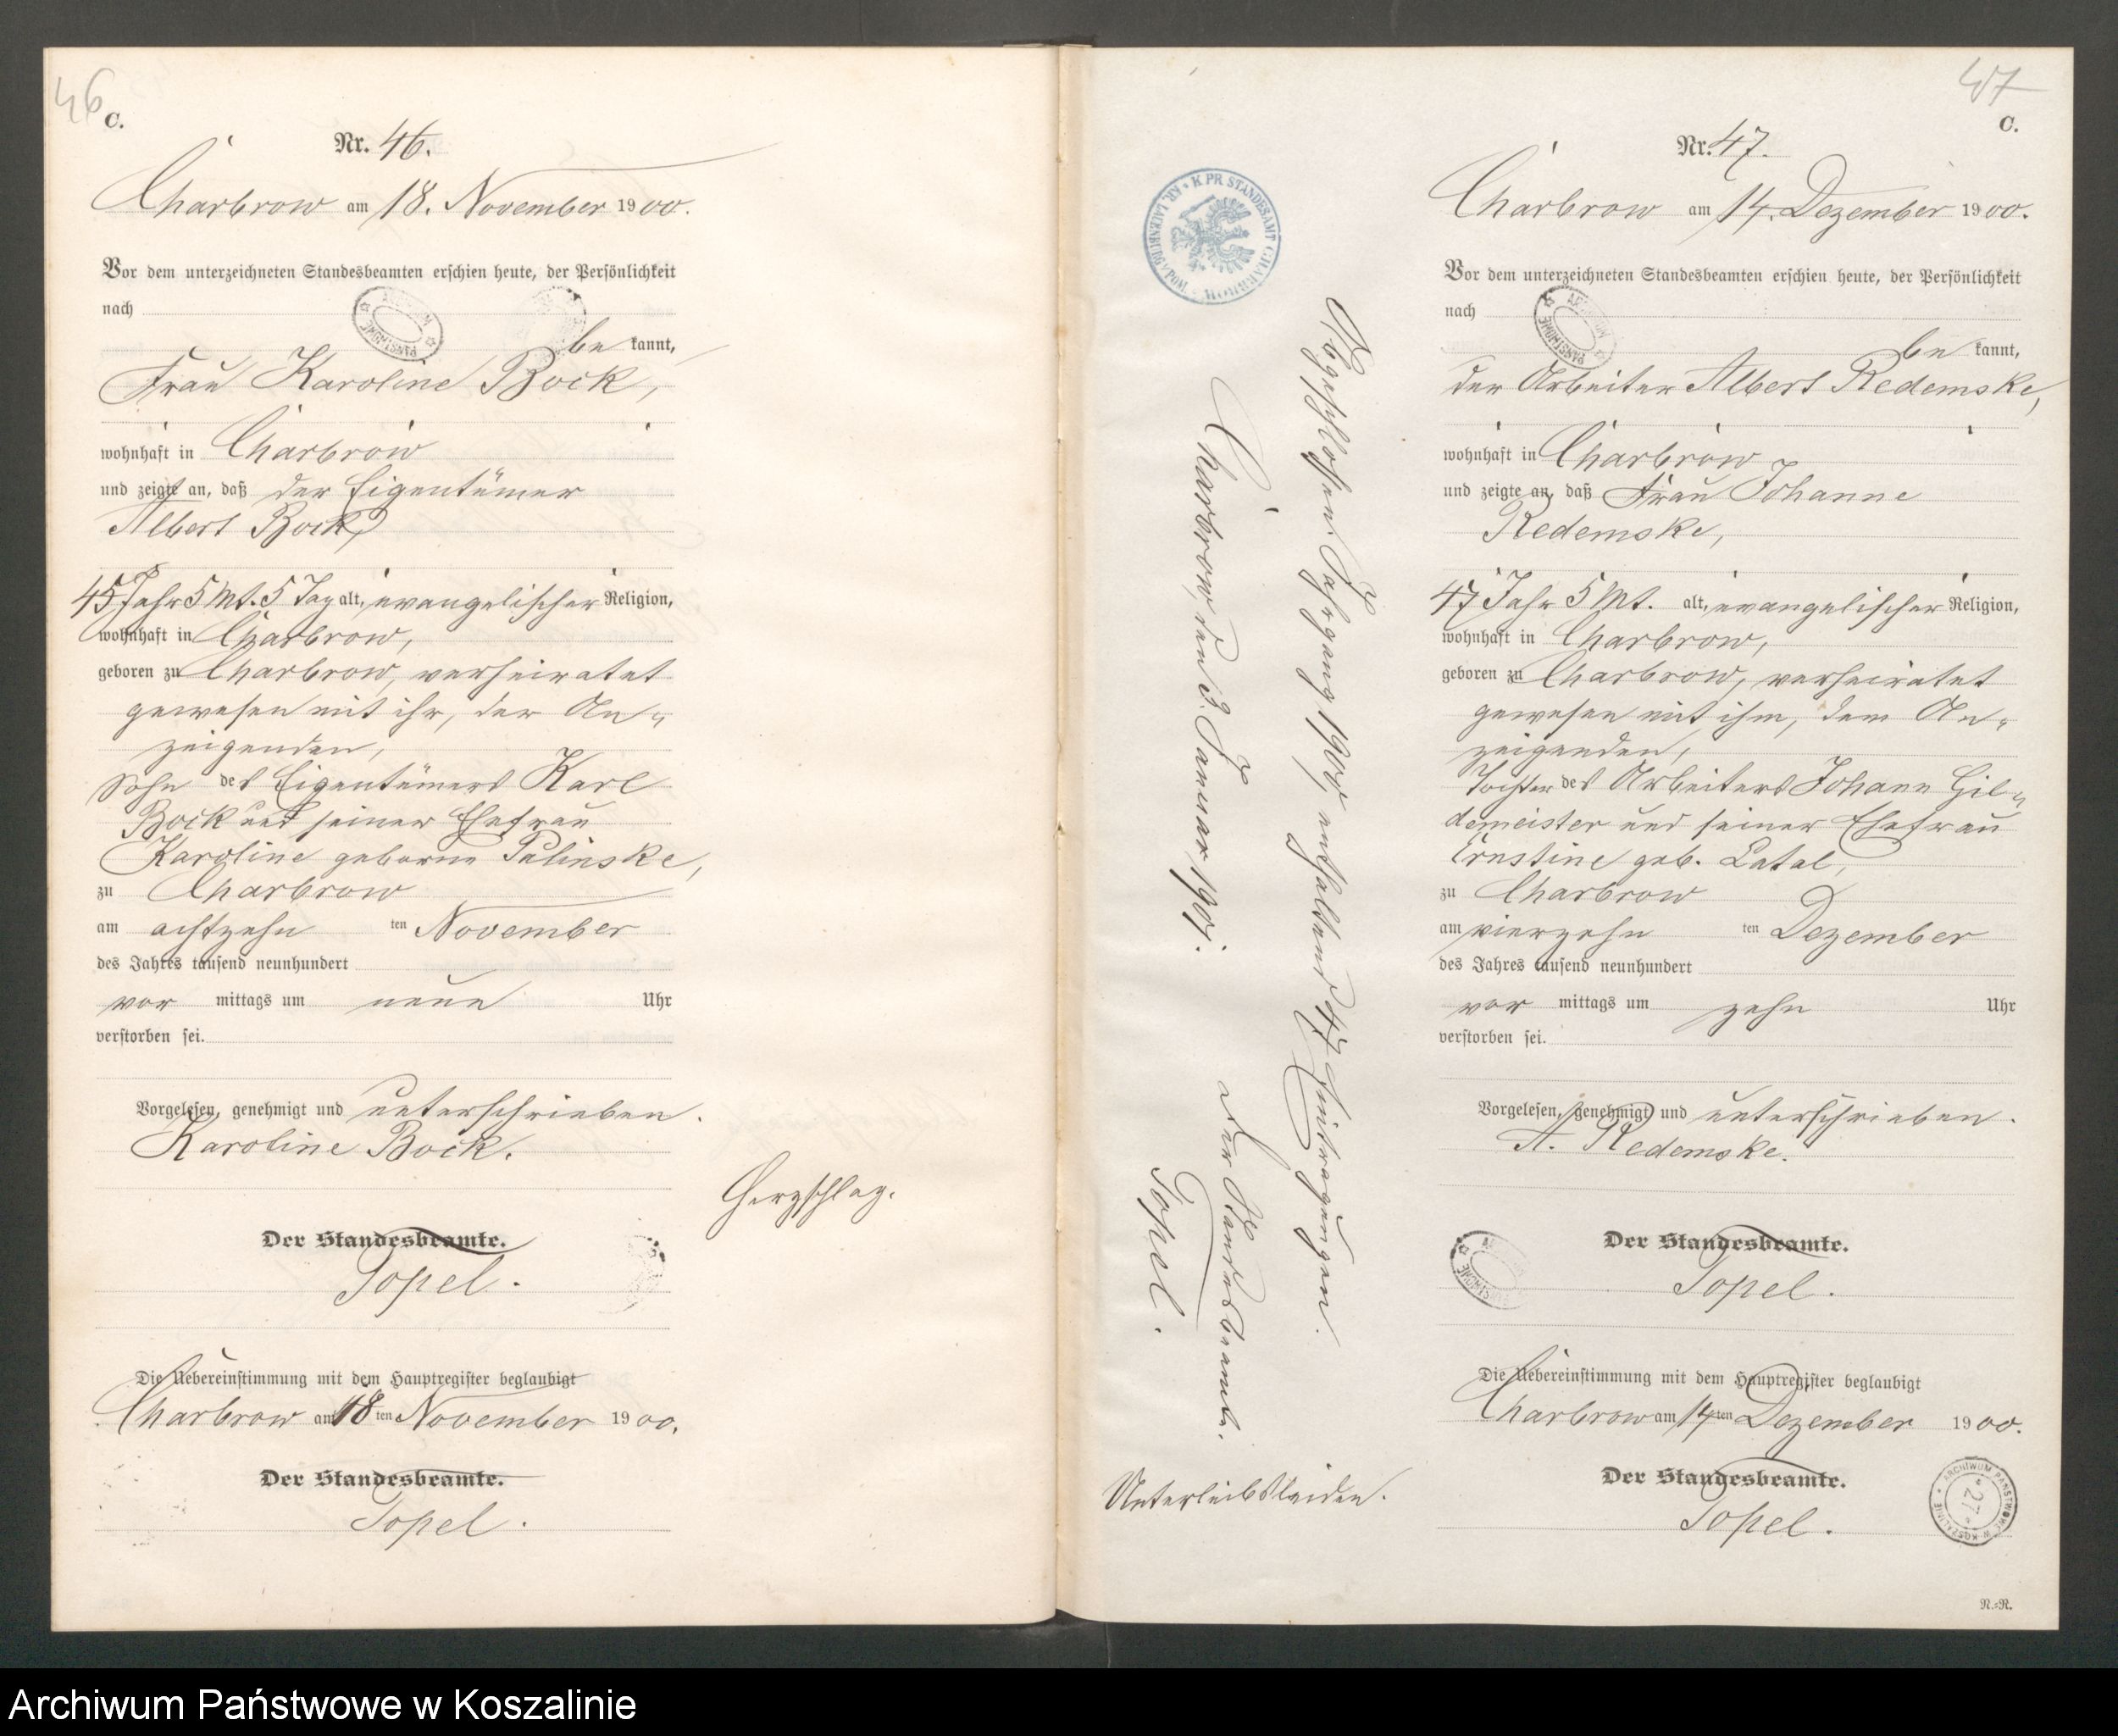 46
C.
Nr. 46.
Charbrow am 18. November 1900.
Vor dem unterzeichneten Standesbeamten erschien heute, der Persönlichkeit
nach
be kannt,
Frau Karoline Bock,
wohnhaft in Charbrow
und zeigte an, daß der Eigentümer
Albert Bock,
45 Jahr 5 Mt. 5 Tag alt, evangelischer Religion,
wohnhaft in Charbrow,
geboren zu Charbrow, verheiratet
gewesen mit ihr, der An-
zeigenden,
Sohn des Eigentümers Karl
Bock und seiner Ehefrau
Karoline geborne Palinske,
zu Charbrow
am achtzehn ten November
des Jahres tausend neunhundert
vor mittags um neun Uhr
verstorben sei.
Vorgelesen, genehmigt und unterschrieben.
Karoline Bock.
Herzschlag.
Der Standesbeamte.
Topel.
Die Uebereinstimmung mit dem Hauptregister beglaubigt
Charbrow am 18 ten November 1900.
Der Standesbeamte.
Topel.
K. PR. STANDESAMT CHARBROW
KR. LAUENBURG i/POM.
Abgeschlossen Jahrgang 1900, enthaltend 47 Eintragungen.
Charbrow, den 3. Januar 1901.
Der Standesbeamte.
Topel.
Unterleibsleiden.
47
C.
Nr. 47.
Charbrow am 14. Dezember 1900.
Vor dem unterzeichneten Standesbeamten erschien heute, der Persönlichkeit
nach
be kannt,
der Arbeiter Albert Redemske,
wohnhaft in Charbrow
und zeigte an, daß Frau Johanne
Redemske,
47 Jahr 5 Mt. alt, evangelischer Religion,
wohnhaft in Charbrow,
geboren zu Charbrow, verheiratet
gewesen mit ihm, dem An-
zeigenden,
Tochter des Arbeiters Johann Gil-
demeister und seiner Ehefrau
Ernstine geb. Latal,
zu Charbrow
am vierzehn ten Dezember
des Jahres tausend neunhundert
vor mittags um zehn Uhr
verstorben sei.
Vorgelesen, genehmigt und unterschrieben.
A. Redemske.
Der Standesbeamte.
Topel.
Die Uebereinstimmung mit dem Hauptregister beglaubigt
Charbrow am 14 ten Dezember 1900.
Der Standesbeamte.
Topel.
ARCHIWUM PAŃSTWOWE W KOSZALINIE
27
N.-N.
Archiwum Państwowe w Koszalinie